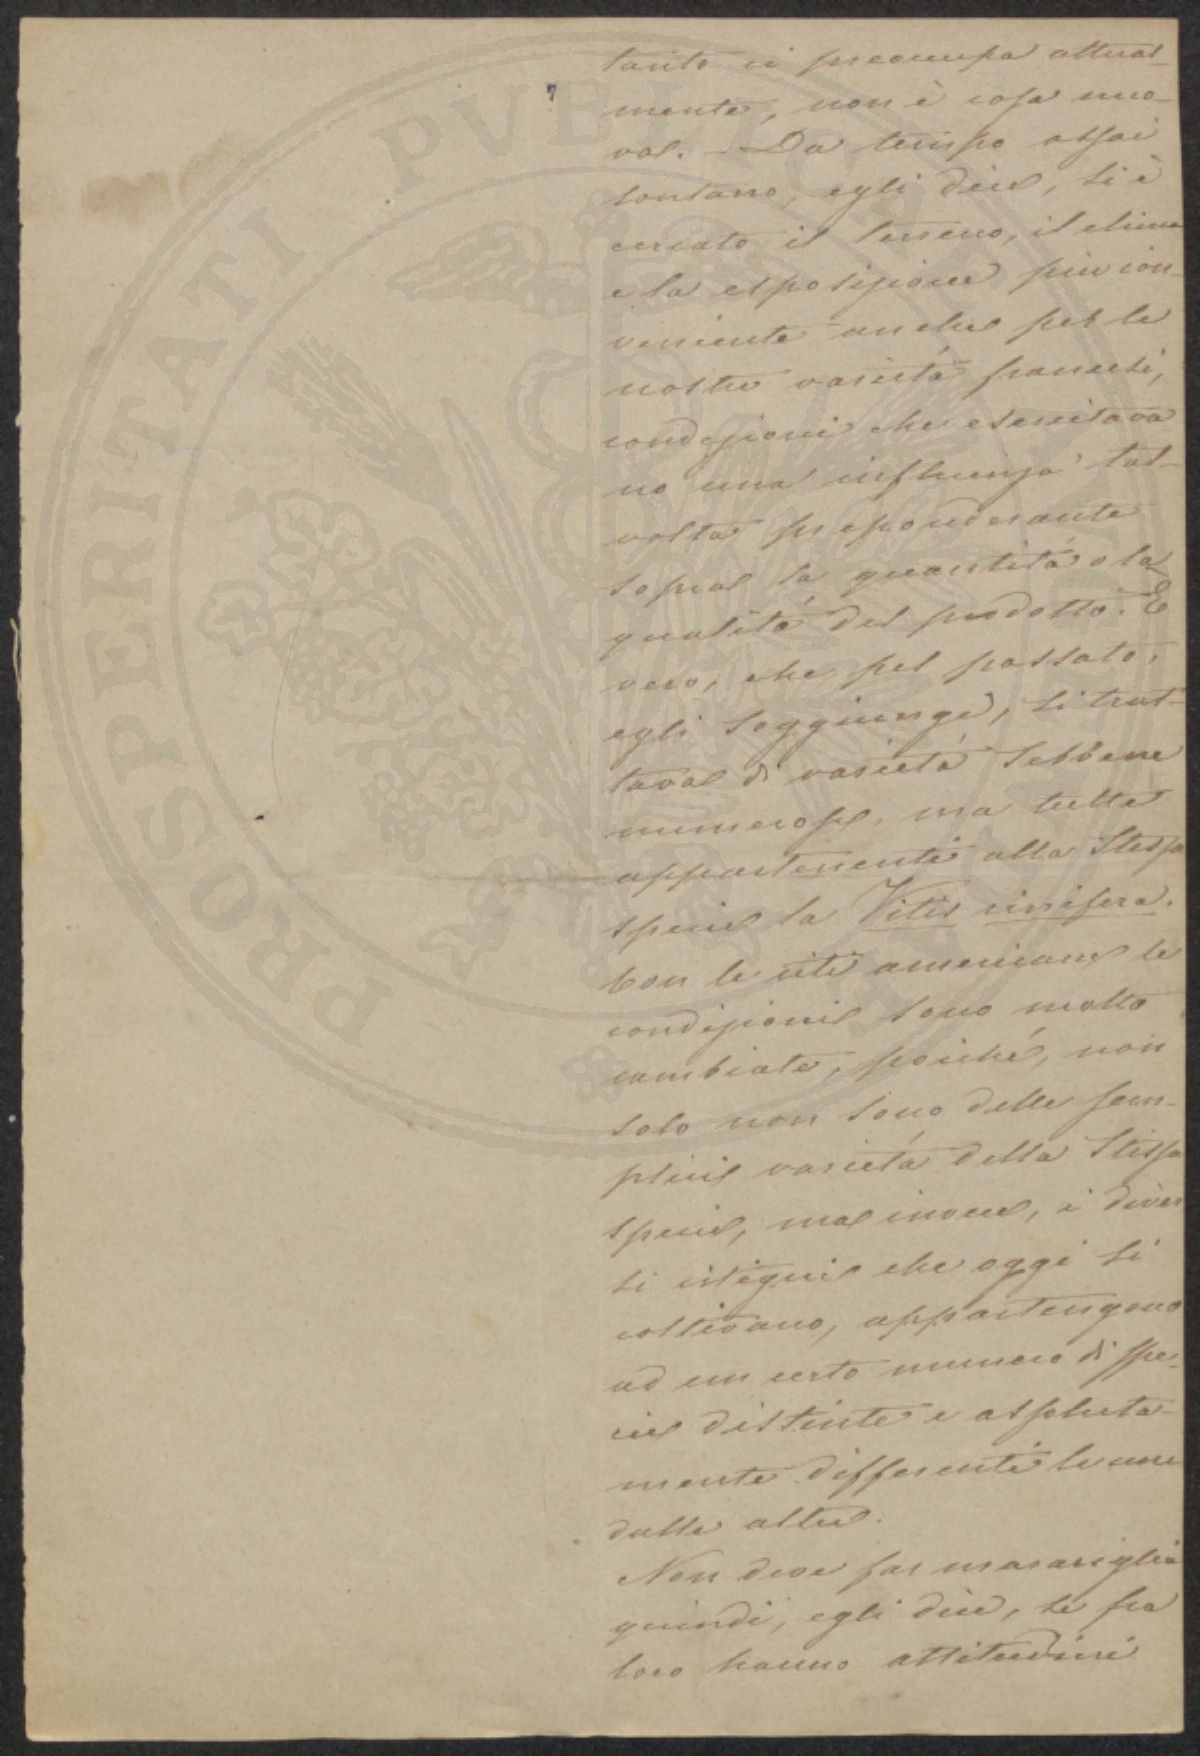 7
tanto si preoccupa attual-
mente, non è cosa nuo-
va. - Da tempo assai
lontano, egli dice, si è
cercato il terreno, il clima
e la esposizione più con-
veniente anche per le
nostre varietà francesi,
condizioni che esercitava
no una influenza tal-
volta preponderante
sopra la quantità o la
qualità del prodotto. È
vero, che pel passato,
egli soggiunge, si trat-
tava di varietà sebbene
numerose, ma tutte
appartenenti alla stessa
specie la Vitis vinifera.
Con le viti americane le
condizioni sono molto
cambiate, poiché, non
solo non sono delle sem-
plici varietà della stessa
specie, ma invece, i diver
si vitigni che oggi si
coltivano, appartengono
ad un certo numero di spe-
cie distinte e assoluta-
mente differenti le une
dalle altre.
Non deve far maraviglia
quindi, egli dice, se fra
loro hanno attitudini
PROSPERITATI PVBLICAE